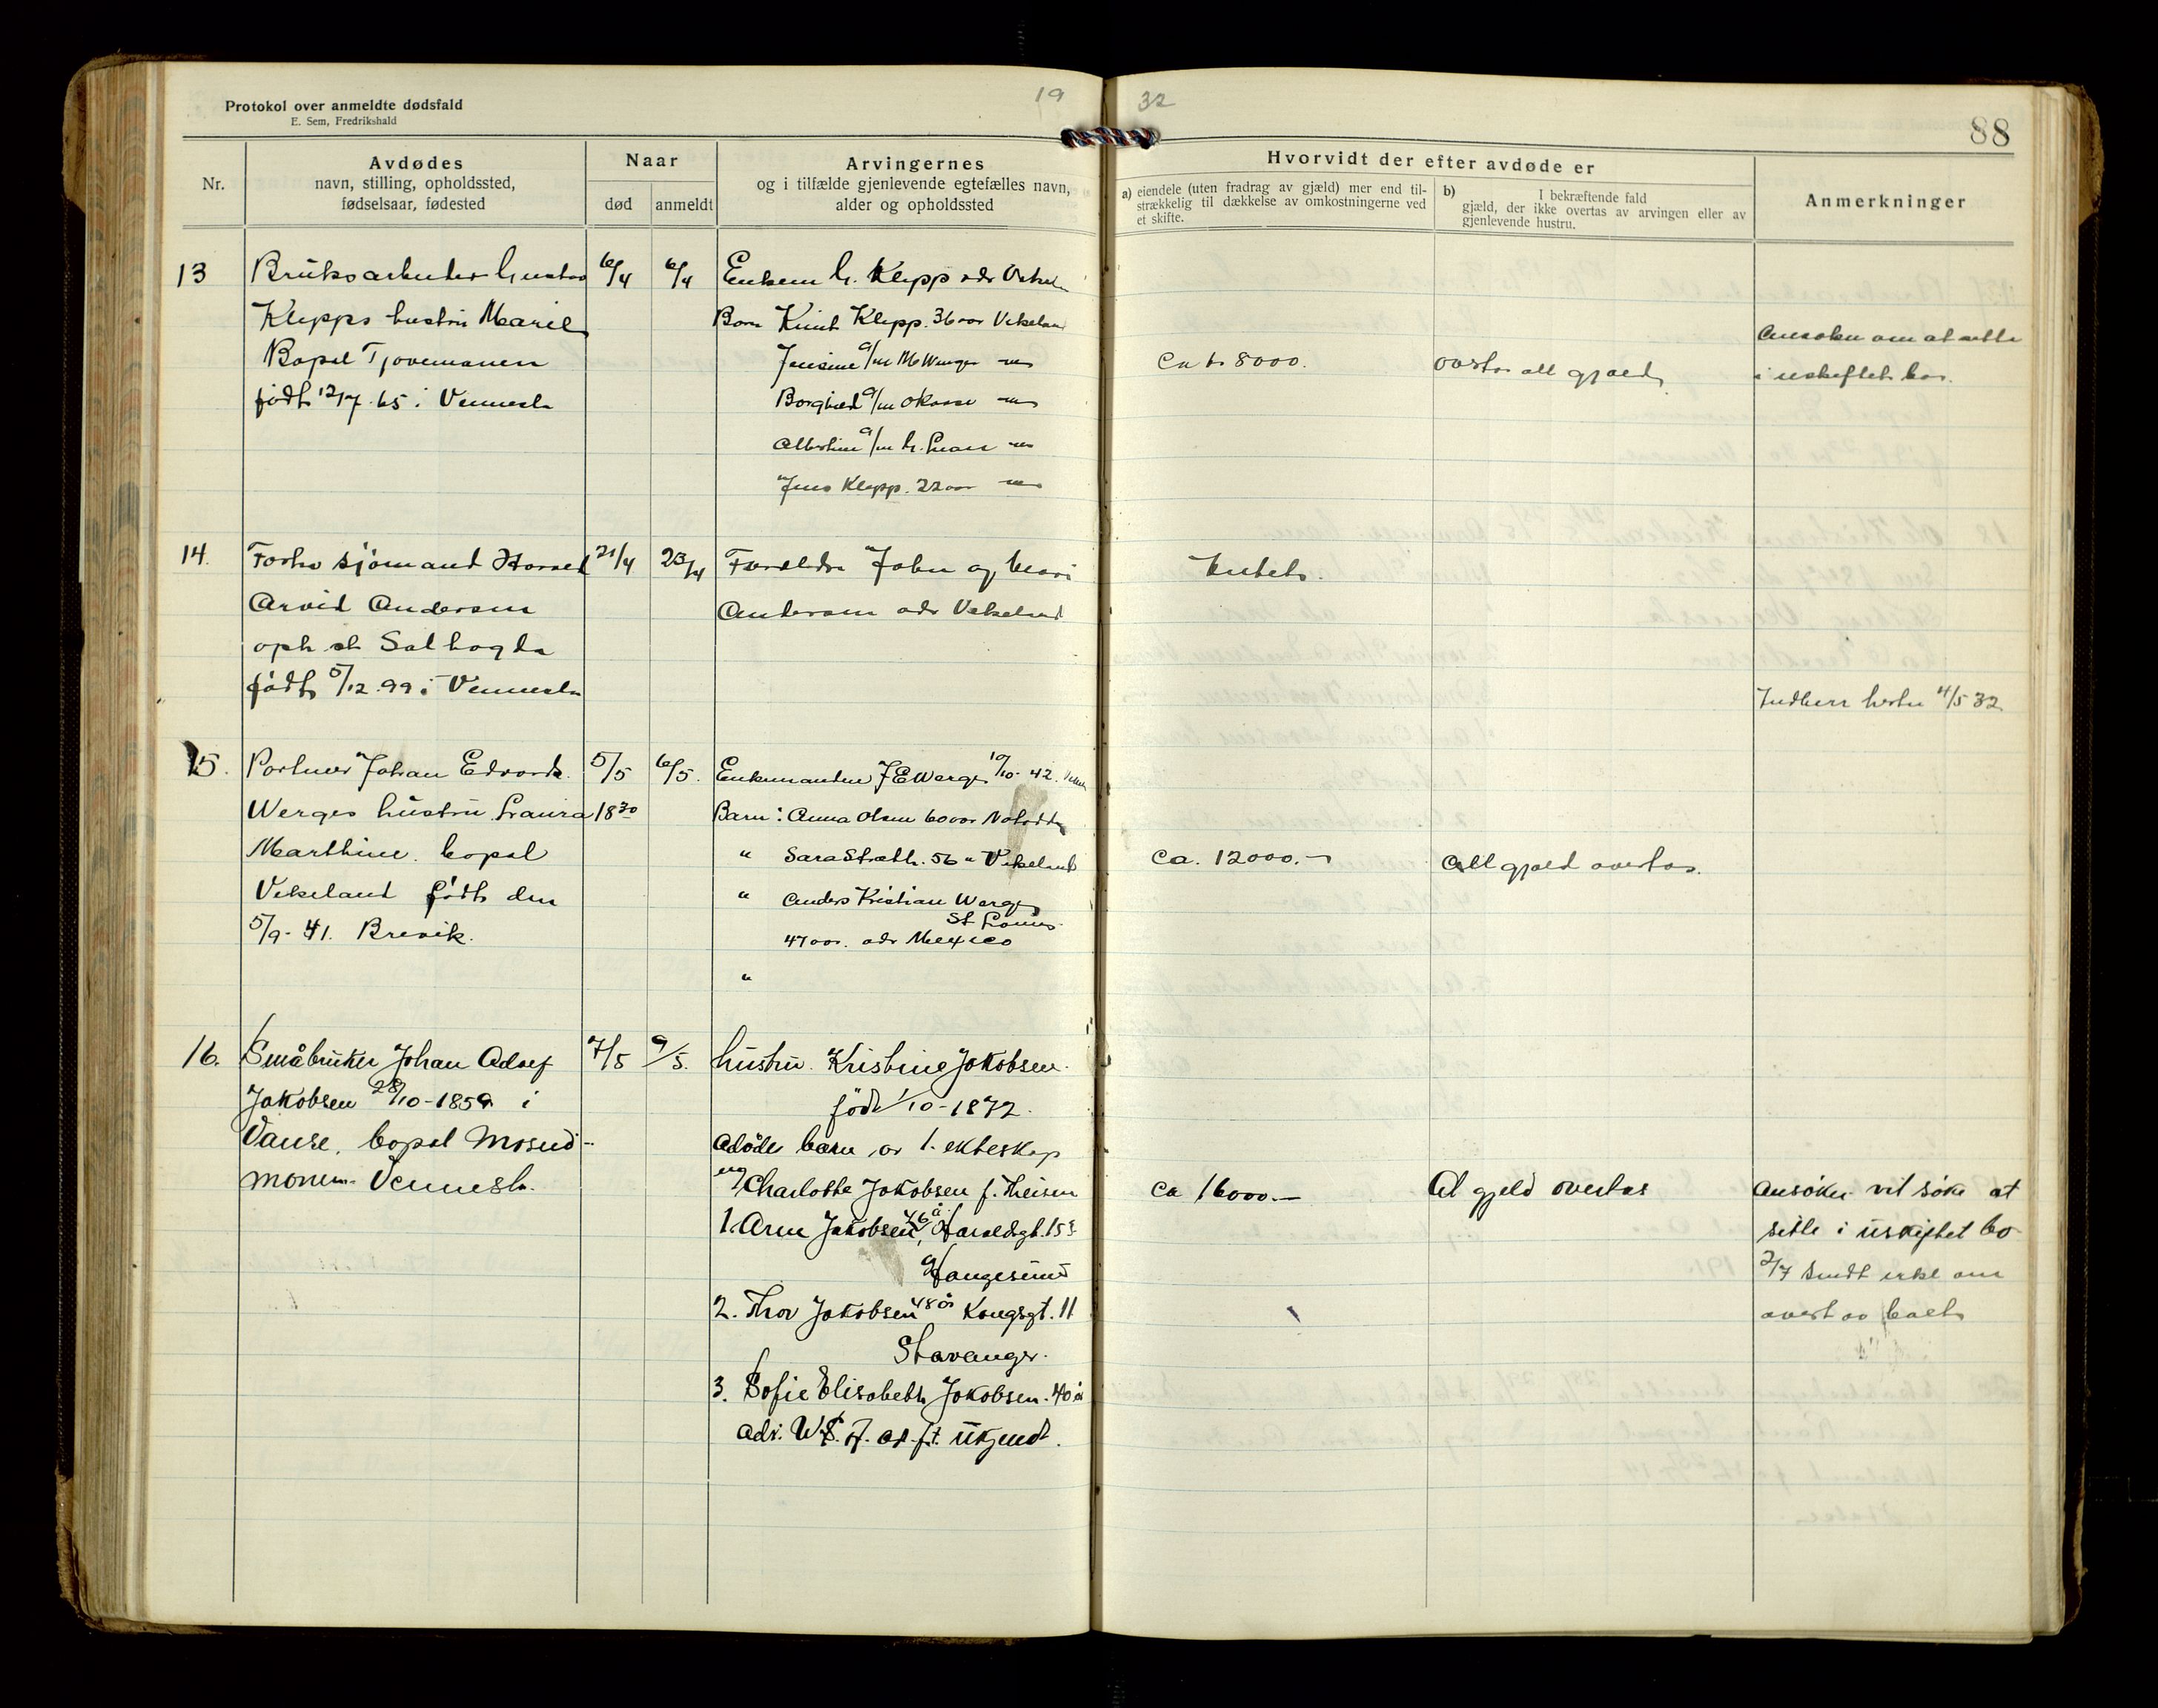 Protokol over anmeldte dødsfald
E. Sem, Fredrikshald
19 32
88
Nr.
Avdødes
navn, stilling, opholdssted,
fødselsaar, fødested
Naar
død
anmeldt
Arvingernes
og i tilfælde gjenlevende egtefælles navn,
alder og opholdssted
Hvorvidt der efter avdøde er
a) eiendele (uten fradrag av gjæld) mer end til-
strækkelig til dækkelse av omkostningerne ved
et skifte.
b) I bekræftende fald
gjæld, der ikke overtas av arvingen eller av
gjenlevende hustru.
Anmerkninger
13
Bruksarbeider Gustav
Klepps hustru
Bopel
født 12/7. 65 i Vennesla
6/4
6/4
Enkem G. Klepp adr
Barn Knut Klepp. 36 aar Vikeland
Jensine g/m
Borghild g/m
g/m
Jens Klepp. 22 aar
Ca kr 8000.
all gjæld
Ansøker om at sitte
i uskiftet bo.
14.
Forhv sjømand
Arvid Andersen
oph
født 5/12. 99 i Vennesla
21/4
23/4
Forældre John og
Andersen adr Vikeland
Intet.
4/5 32
15.
Portner Johan Edvard
Werges hustru Laura
Marthine. bopel
Vikeland født den
5/9 - 41. Brevik.
5/5
18 30
6/5.
Enkemanden J E Werge 10/10 - 42.
Barn: Anna Olsen 60 aar
" Sara 56 " Vikeland
" Anders Kristian Werge
St Louis
47 aar. adr Mexico
"
Ca. 12000.-
All gjæld overtas.
16.
Småbruker Johan Adolf
Jakobsen 28/10 - 1859 i
Vanse. bopel Mosed-
monen - Vennesla.
7/5
9/5.
hustru. Kristine Jakobsen.
født 1/10 - 1872.
avdøde barn av 1. ekteskap
m/ Charlotte Jakobsen f. Theisen
1. Arne Jakobsen, 46 å Haraldsgt. 153
Haugesund
2. Thor Jakobsen 48 år Kongsgt. 11
Stavanger.
3. Sofie Elisabeth Jakobsen. 40 å
adr. U. S. A. ukjendt.
Ca 16000.-
Al gjeld overtas
Ansøker vil søke at
sitte i uskiftet bo
2/7 sendt erkl om
overt av boet